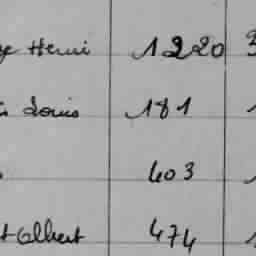 Henri 1220
Louis 181
403
Albert 474